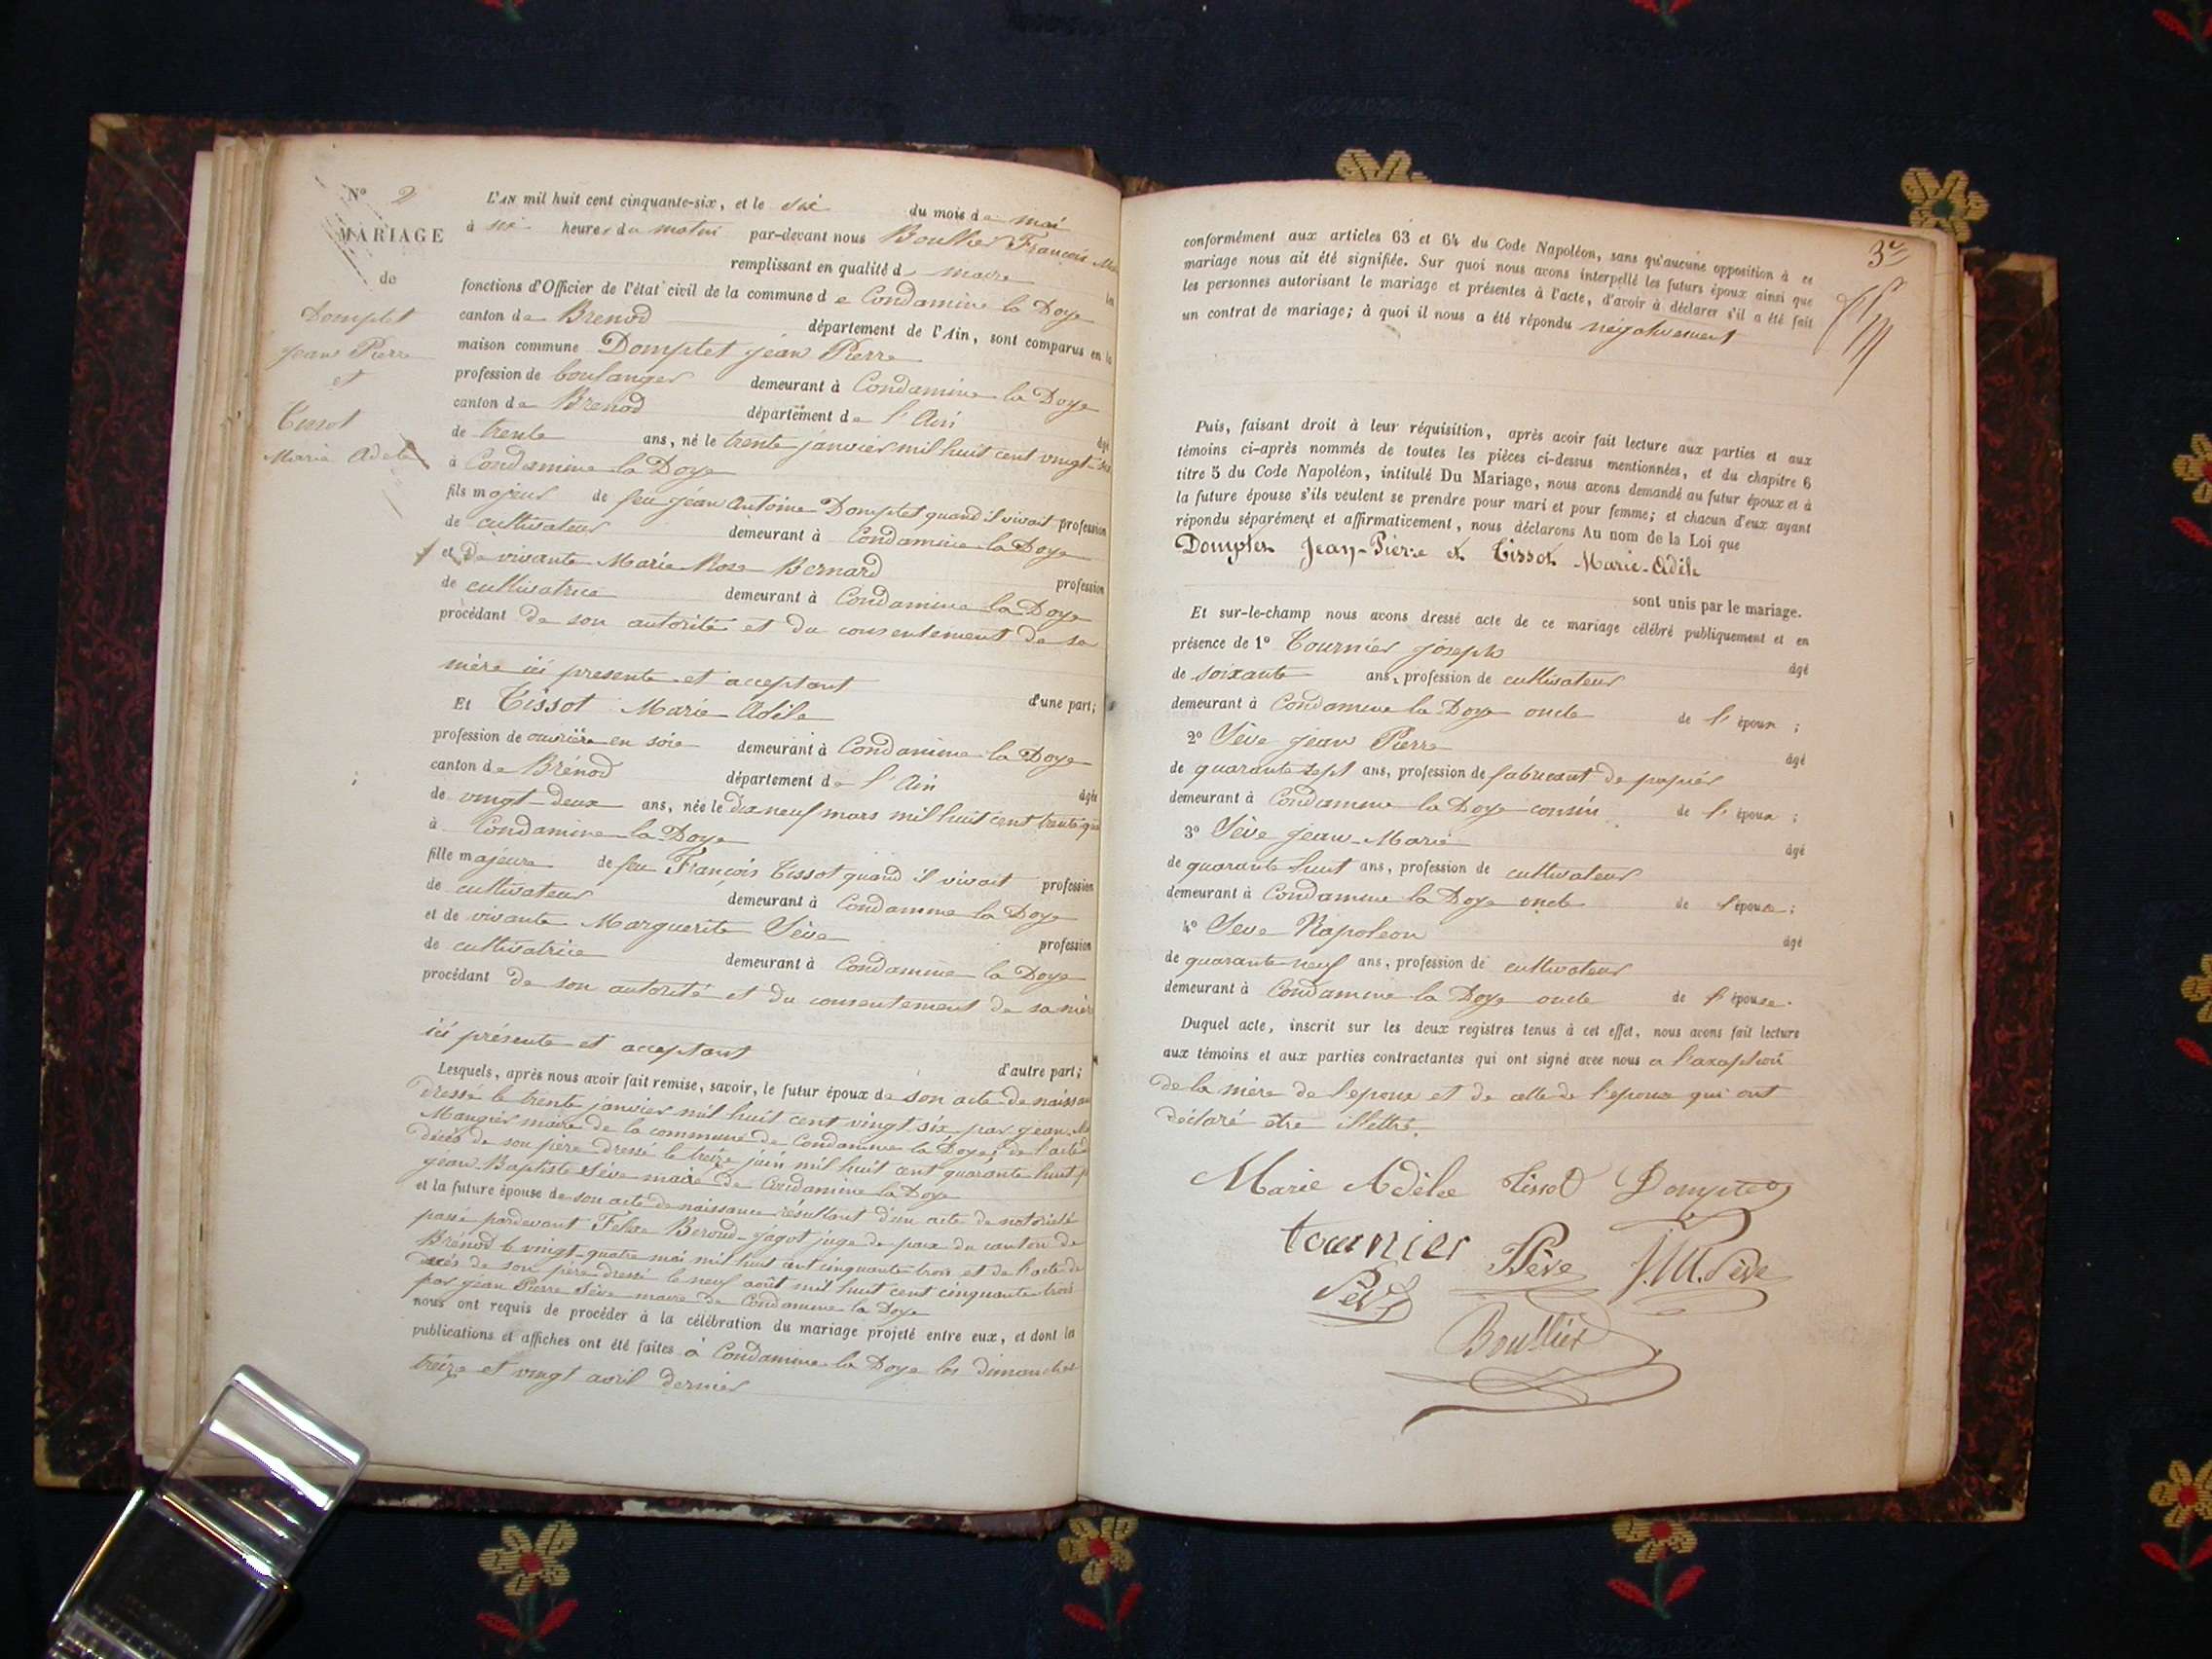 N° 2
MARIAGE
de
Domptet
Jean Pierre
et
Tissot
Marie Adele
L'AN mil huit cent cinquante-six, et le six du mois de mai
à six heures du matin par-devant nous Boullier François
remplissant en qualité de maire les
fonctions d'Officier de l'état civil de la commune de Condamine la Doye
canton de Brenod département de l'Ain, sont comparus en la
maison commune Domptet Jean Pierre
profession de boulanger demeurant à Condamine la Doye
canton de Brenod département de l'Ain âgé
de trente ans, né le trente janvier mil huit cent vingt-six
à Condamine la Doye
fils majeur de feu Jean Antoine Domptet quand il vivait profession
de cultivateur demeurant à Condamine la Doye
et de vivante Marie Rose Bernard profession
de cultivatrice demeurant à Condamine la Doye
procédant de son autorité et du consentement de sa
mère ici presente et acceptant d'une part;
Et Tissot Marie Adèle
profession de ouvrière en soie demeurant à Condamine la Doye
canton de Brénod département de l'Ain âgée
de vingt-deux ans, née le dix neuf mars mil huit cent trente
à Condamine la Doye
fille majeure de feu François Tissot quand il vivait profession
de cultivateur demeurant à Condamine la Doye
et de vivante Marguerite Sève profession
de cultivatrice demeurant à Condamine la Doye
procédant de son autorité et du consentement de sa mère
ici présente et acceptant d'autre part;
Lesquels, après nous avoir fait remise, savoir, le futur époux de son acte de naissance
dressé le trente janvier mil huit cent vingt six par Jean
Maugier maire de la commune de Condamine la Doye; de l'acte de
décès de son père dressé le treize juin mil huit cent quarante huit
Jean Baptiste Sève maire de Condamine la Doye
et la future épouse de son acte de naissance résultant d'un acte de notoriété
passé pardevant Felix Beroud-Jagot juge de paix du canton de
Brénod le vingt-quatre mai mil huit cent cinquante trois et de l'acte de
décés de son père dressé le neuf août mil huit cent cinquante trois
par Jean Pierre Sève maire de Condamine la Doye
nous ont requis de procéder à la célébration du mariage projeté entre eux, et dont les
publications et affiches ont été faites à Condamine la Doye les dimanches
treize et vingt avril dernier
3
conformément aux articles 63 et 64 du Code Napoléon, sans qu'aucune opposition à ce
mariage nous ait été signifiée. Sur quoi nous avons interpellé les futurs époux ainsi que
les personnes autorisant le mariage et présentes à l'acte, d'avoir à déclarer s'il a été fait
un contrat de mariage; à quoi il nous a été répondu négativement
Puis, faisant droit à leur réquisition, après avoir fait lecture aux parties et aux
témoins ci-après nommés de toutes les pièces ci-dessus mentionnées, et du chapitre 6
titre 5 du Code Napoléon, intitulé Du Mariage, nous avons demandé au futur époux et à
la future épouse s'ils veulent se prendre pour mari et pour femme; et chacun d'eux ayant
répondu séparément et affirmativement, nous déclarons Au nom de la Loi que
Domptet Jean-Pierre et Tissot Marie-Adèle
sont unis par le mariage.
Et sur-le-champ nous avons dressé acte de ce mariage célébré publiquement et en
présence de 1° Tournier Joseph âgé
de soixante ans, profession de cultivateur
demeurant à Condamine la Doye oncle de l'époux ;
2° Sève Jean Pierre âgé
de quarante sept ans, profession de fabricant de papier
demeurant à Condamine la Doye cousin de l'époux ;
3° Sève Jean-Marie âgé
de quarante huit ans, profession de cultivateur
demeurant à Condamine la Doye oncle de l'épouse ;
4° Seve Napoleon âgé
de quarante neuf ans, profession de cultivateur
demeurant à Condamine la Doye oncle de l'épouse.
Duquel acte, inscrit sur les deux registres tenus à cet effet, nous avons fait lecture
aux témoins et aux parties contractantes qui ont signé avec nous a l'exception
de la mère de l'epoux et de celle de l'epouse qui ont
déclaré être illettré.
Marie Adèle Tissot Domptet
tournier Sève J.M. Sève
Sève
Boullier